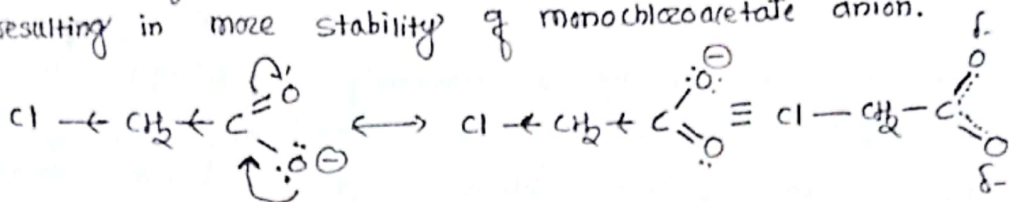 resulting in more stability of monochloroacetate anion.
Cl ← CH₂ ← C = O O ⊖ ↔ Cl ← CH₂ ← C O ⊖ = O ≡ Cl — CH₂ — C O δ- O δ-